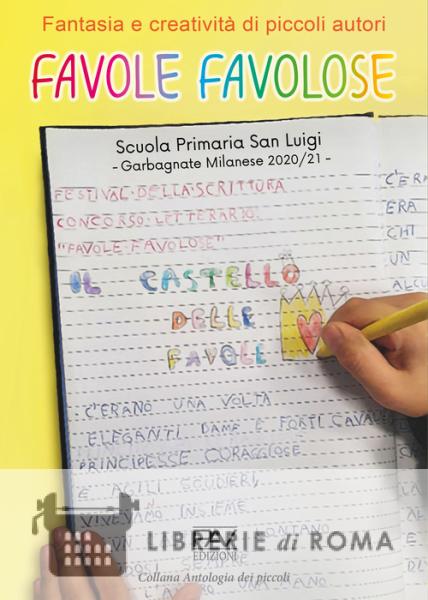 Fantasia e creatività di piccoli autori
FAVOLE FAVOLOSE
Scuola Primaria San Luigi
- Garbagnate Milanese 2020/21 -
FESTIVAL DELLA SCRITTURA
CONCORSO LETTERARIO
"FAVOLE FAVOLOSE"
IL CASTELLO
DELLE
FAVOLE
C'ERANO UNA VOLTA
ELEGANTI DAME E FORTI CAVAL
PRINCIPESSE CORAGGIOSE
E AGILI SCUDIERI
VIVEVANO INSIEME
LONTANO
UN
C'ERA
ERA
CHI
UN
ALCU
PAV
EDIZIONI
LIBRERIE di ROMA
Collana Antologia dei piccoli